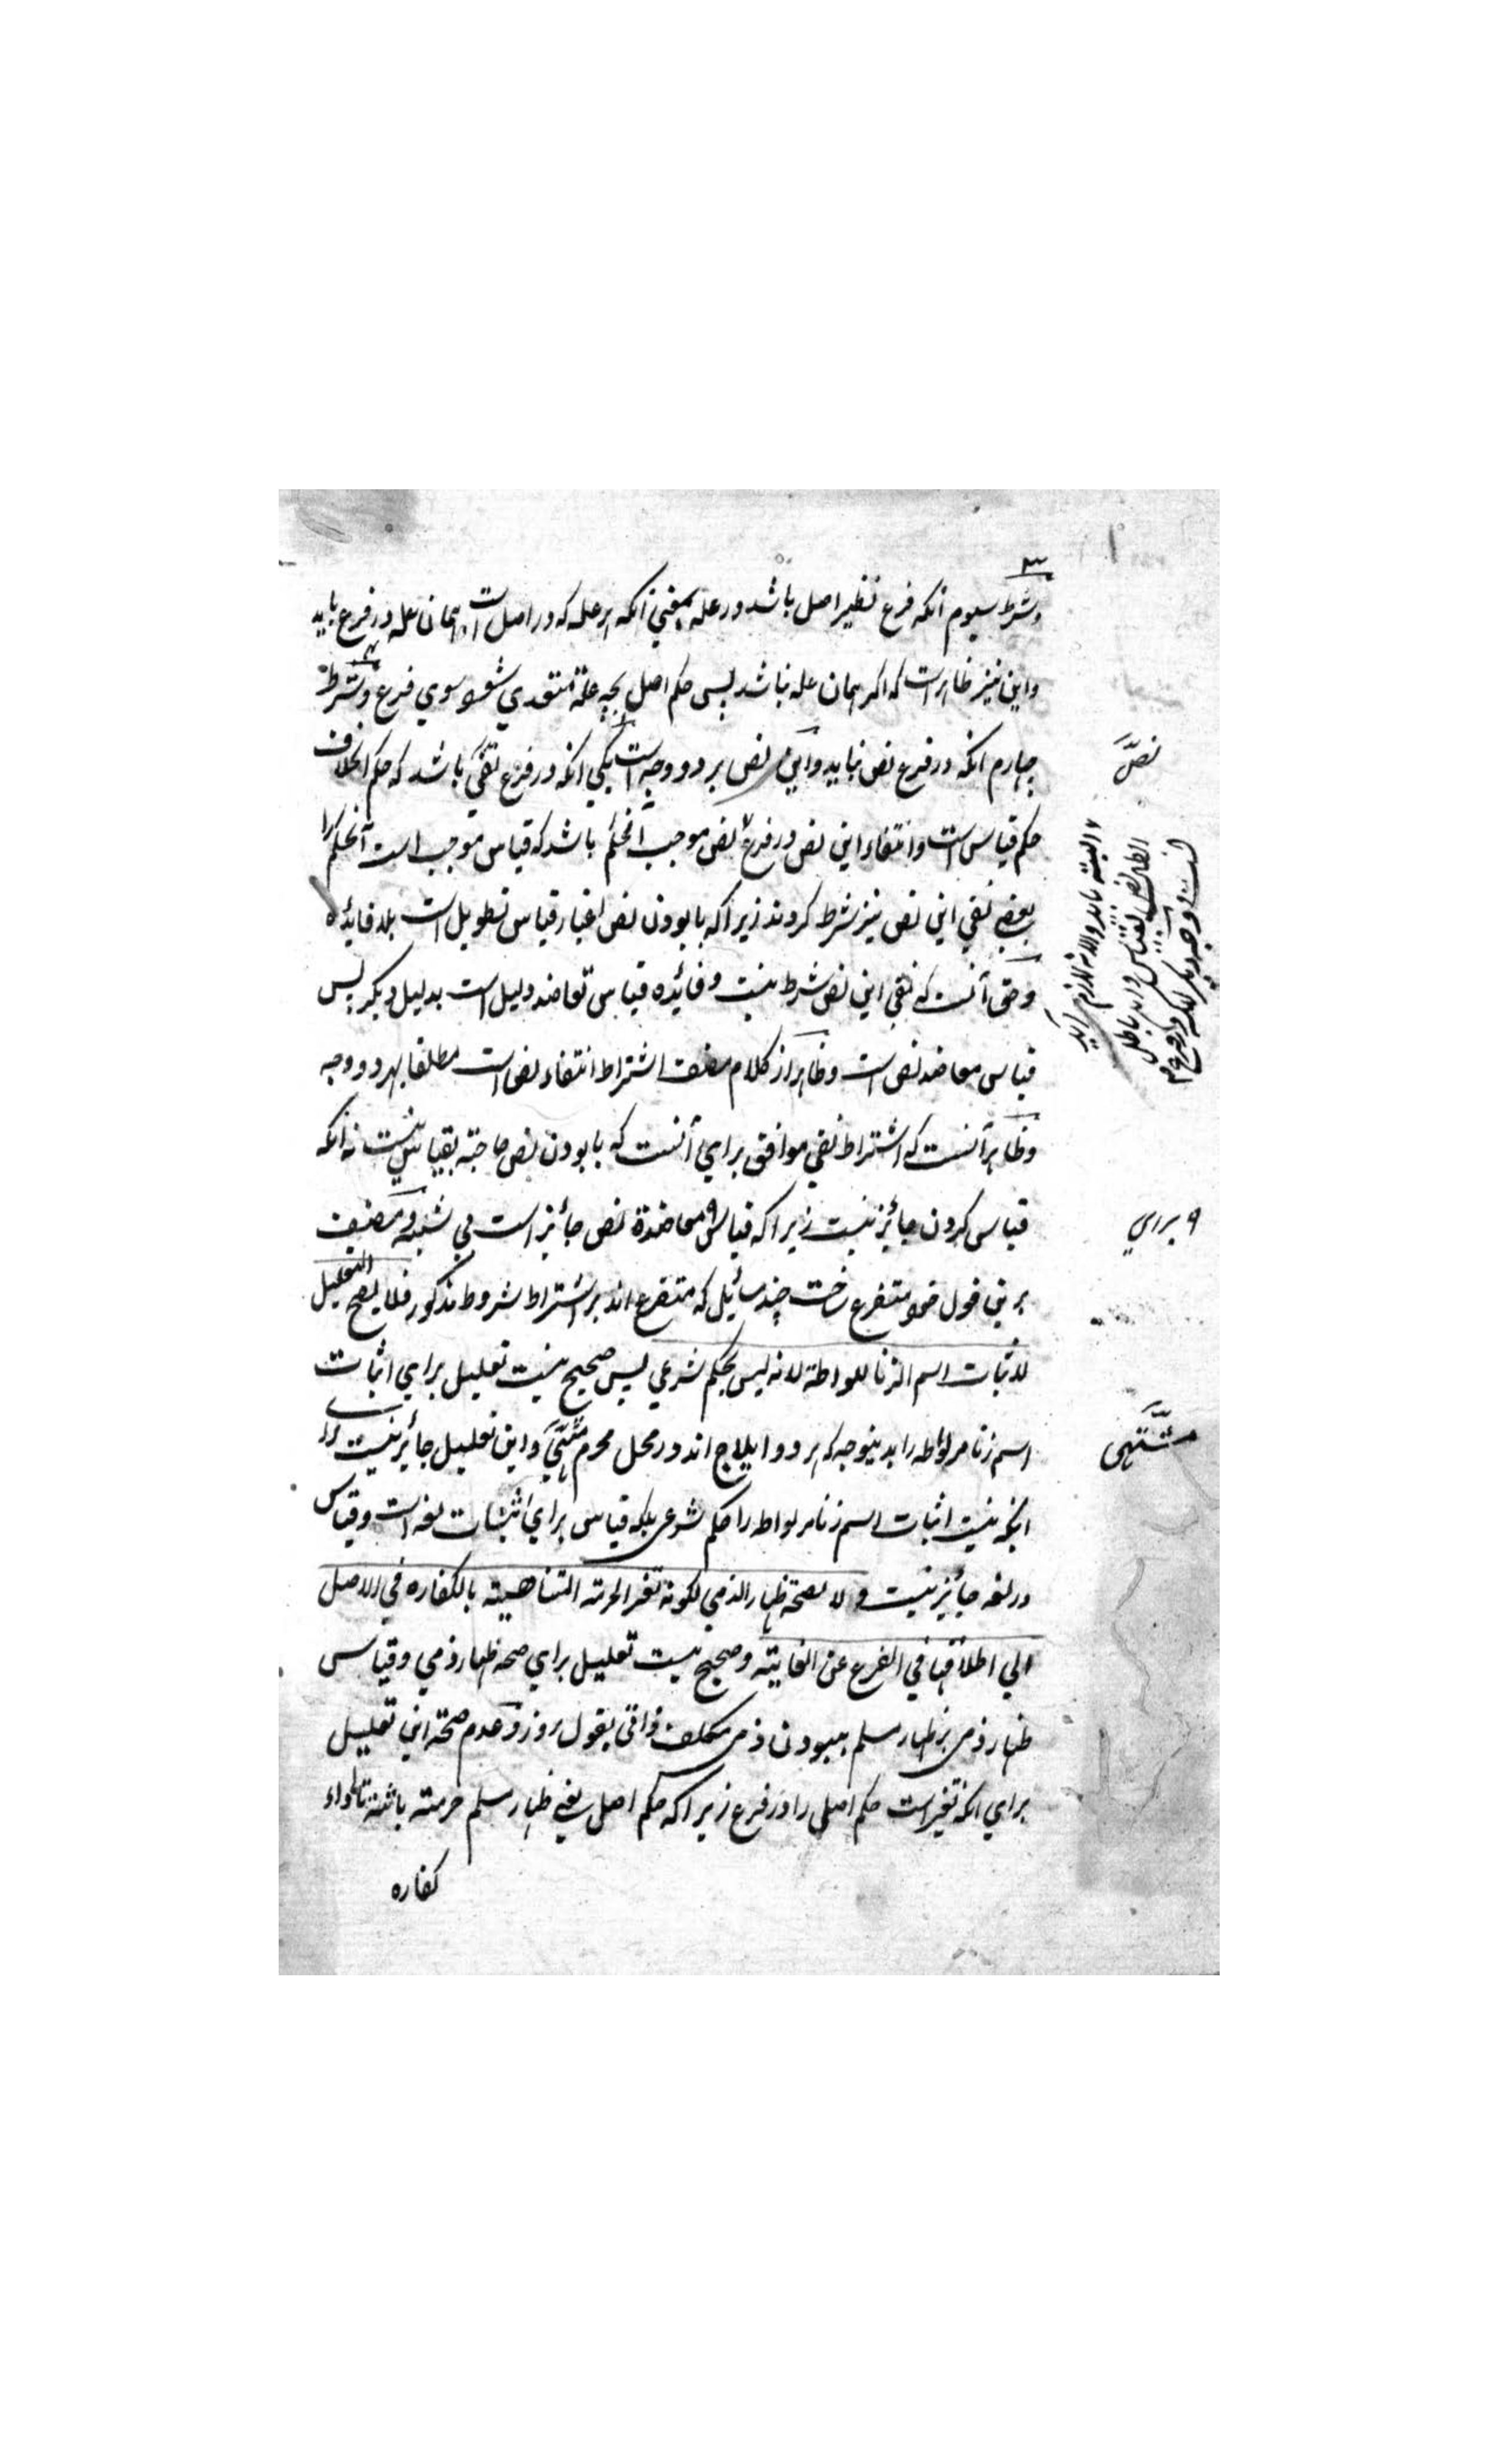 ۳
وشرط سیوم انکه فرع نظیر اصل باشد در عله یعنی انکه هر عله که در اصل است همان عله در فرع باید
واین نیز ظاهر است که اکر همان عله نباشد پس حکم اصل بچه علة متعدی شود سوی فرع وشرط
چهارم انکه در فرع نص نباید واین نص بر دو وجه است یکی انکه در فرع نصی باشد که حکم او خلاف
حکم قیاس است وانتفاء این نص در فرع نص موجب آنحکم باشد که قیاس موجب است آنحکم را
بعضی نفی این نص نیز شرط کردند زیرا که با بودن نص اعتبار قیاس تطویل است بلا فایده
وحق آنست که نفی این نص شرط نیست وفائده قیاس تعاضد دلیل است بدلیل دیکر پس
قیاس معاضد نص است وظاهر از کلام مصنف اشتراط انتفاء نص است مطلقا بهر دو وجه
وظاهر آنست که اشتراط نفی موافق برای آنست که با بودن نص حاجته بقیاس نیست نه انکه
قیاس کردن جائز نیست زیرا که قیاس معاضدة نص جائز است بی شبهه ومصنف
برین قول خود متفرع ساخت چند مسائل که متفرع اند بر اشتراط شروط مذکور فلا یصح التعلیل
لاثبات اسم الزنا للواطة لانه لیس بحکم شرعی پس صحیح نیست تعلیل برای اثبات
اسم زنا مر لواطه را بدینوجه که هر دو ایلاج اند در محل محرم مشتهی واین تعلیل جائز نیست برای
انکه نیست اثبات اسم زنا مر لواطه را حکم شرعی بلکه قیاس برای اثبات لغه است وقیاس
در لغه جائز نیست ولا لصحة ظهار الذمی لکونه تغیر الحرمته المتناهیته بالکفاره فی الاصل
الی اطلاقها فی الفرع عن الغایته وصحیح نیست تعلیل برای صحه ظهار ذمی وقیاس
ظهار ذمی بر ظهار مسلم ببودن ذمی مکلف وعدم صحة این تعلیل
برای انکه تغیر است حکم اصلی را در فرع زیرا که حکم اصل یعنی ظهار مسلم حرمته باشد تا اداء
کفاره
نصّ
البته باید والا لازم آید
ابطال نص بقیاس واین باطل
است ووجه دیکر انکه در فرع
۹ برای
مشتهی